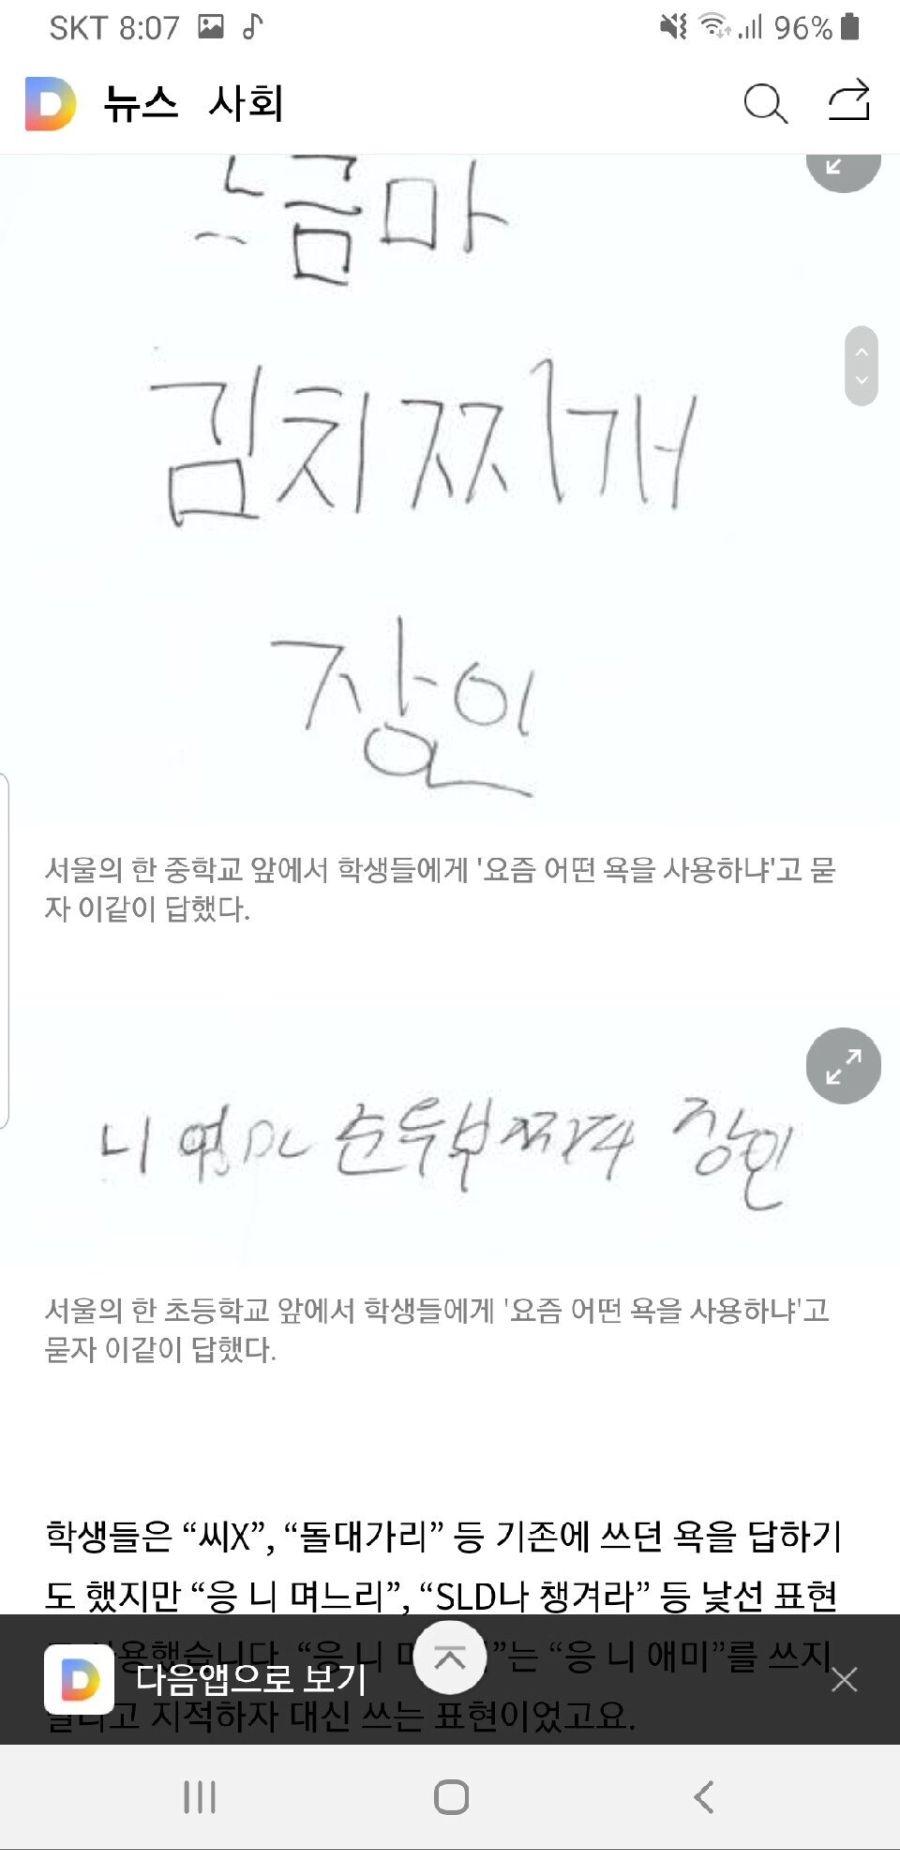 SKT 8:07 96%
뉴스 사회
느금마
김치찌개
장인
서울의 한 중학교 앞에서 학생들에게 '요즘 어떤 욕을 사용하냐'고 묻
자 이같이 답했다.
니 엄마 순두부찌개 장인
서울의 한 초등학교 앞에서 학생들에게 '요즘 어떤 욕을 사용하냐'고
묻자 이같이 답했다.
학생들은 “씨X”, “돌대가리” 등 기존에 쓰던 욕을 답하기
도 했지만 “응 니 며느리”, “SLD나 챙겨라” 등 낯선 표현
사용했습니다. “응 니 는 “응 니 애미”를 쓰지
다음앱으로 보기
지적하자 대신 쓰는 표현이었고요.